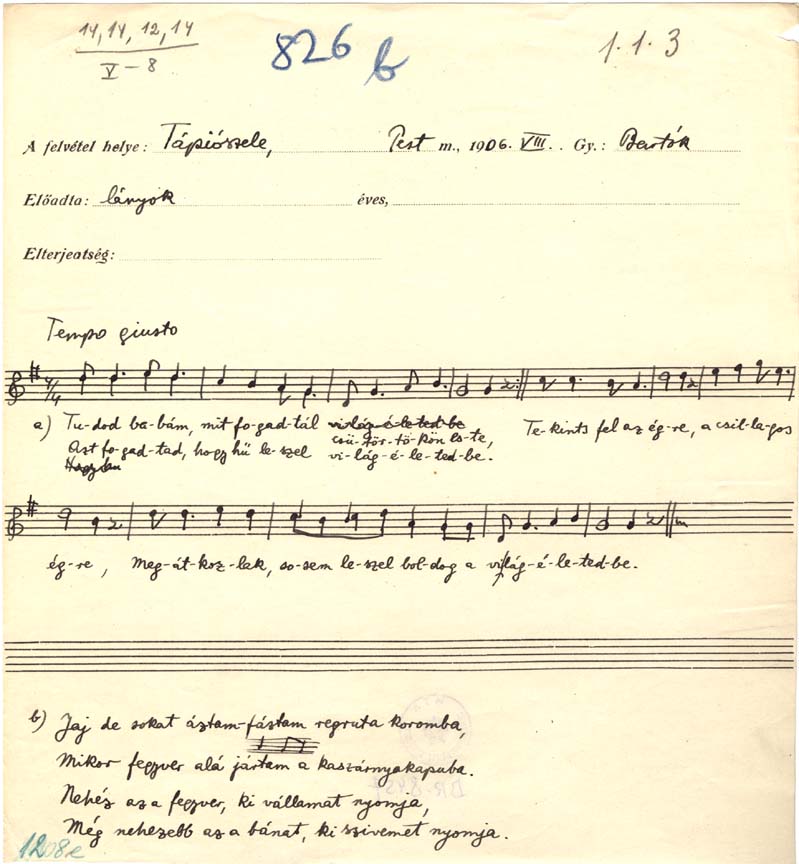 14, 14, 12, 14
V – 8
826 b
1. 1. 3
A felvétel helye: Tápiószele, Pest m., 1906. VIII. Gy.: Bartók
Előadta: lányok éves,
Elterjeatség:
Tempo giusto
4/4
a) Tu-dod ba-bám, mit fo-gad-tál vi-lág-é-le-ted-be
csü-tör-tö-kön es-te, Te-kints fel az ég-re, a csil-la-gos
Azt fo-gad-tad, hogy hű le-szel vi-lág-é-le-ted-be.
ég-re, Meg-át-koz-lak, so-sem le-szel bol-dog a vi-lág-é-le-ted-be.
b) Jaj de sokat áztam-fáztam regruta koromba,
Mikor fegyver alá jártam a kaszárnyakapuba.
Nehéz az a fegyver, ki vállamat nyomja,
Még nehezebb az a bánat, ki szivemet nyomja.
1208e